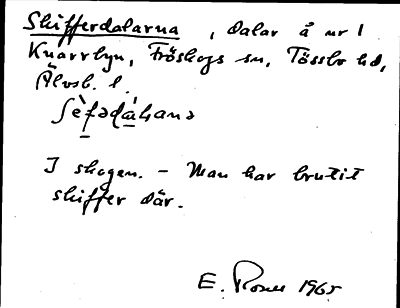 Skifferdalarna, dalar å nr 1
Knarrbyn, Fröskogs sn, Tössbo hd,
Älvsb. l.
I skogen. - Man har brutit
skiffer där.
E. 1965